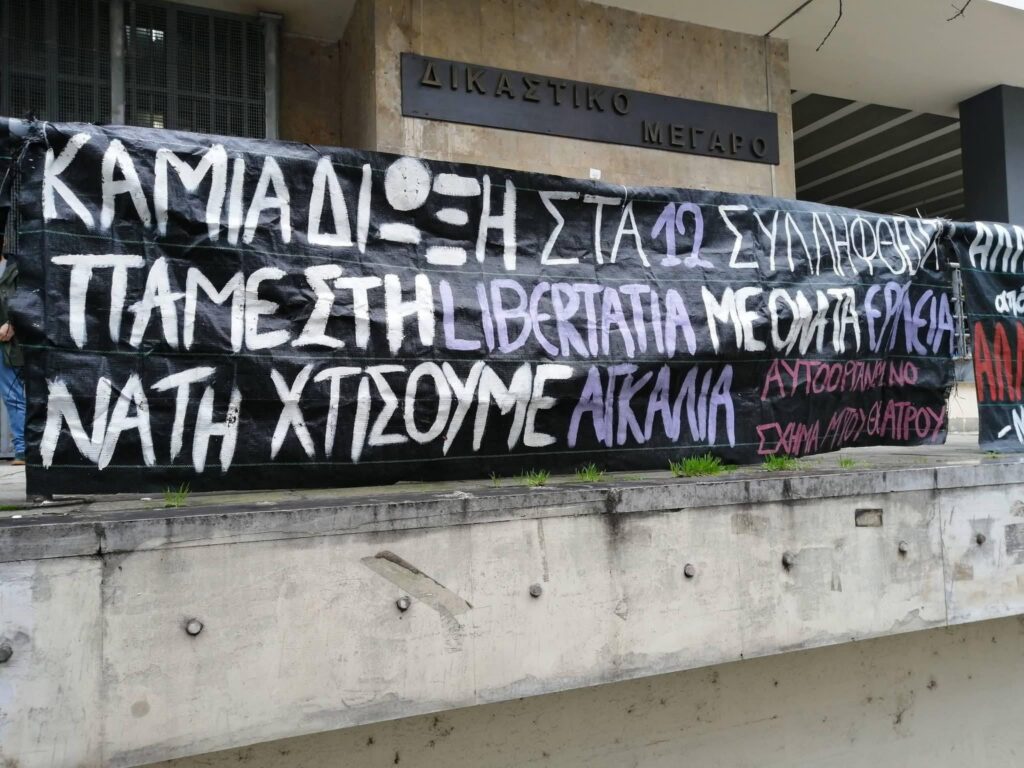 ΔΙΚΑΣΤΙΚΟ
ΜΕΓΑΡΟ
ΚΑΜΙΑ ΔΙΩΞΗ ΣΤΑ 12 ΣΥΛΛΗΦΘΕΝ
ΠΑΜΕ ΣΤΗ LIBERTATIA ΜΕ ΟΛΑ ΤΑ ΕΡΓΑΛΕΙΑ
ΝΑ ΤΗ ΧΤΙΣΟΥΜΕ ΑΓΚΑΛΙΑ
ΑΥΤΟΟΡΓΑΝΩΜΕΝΟ
ΣΧΗΜΑ ΤΟΥ ΘΕΑΤΡΟΥ
ΑΛΛ
από
ΑΛΛ